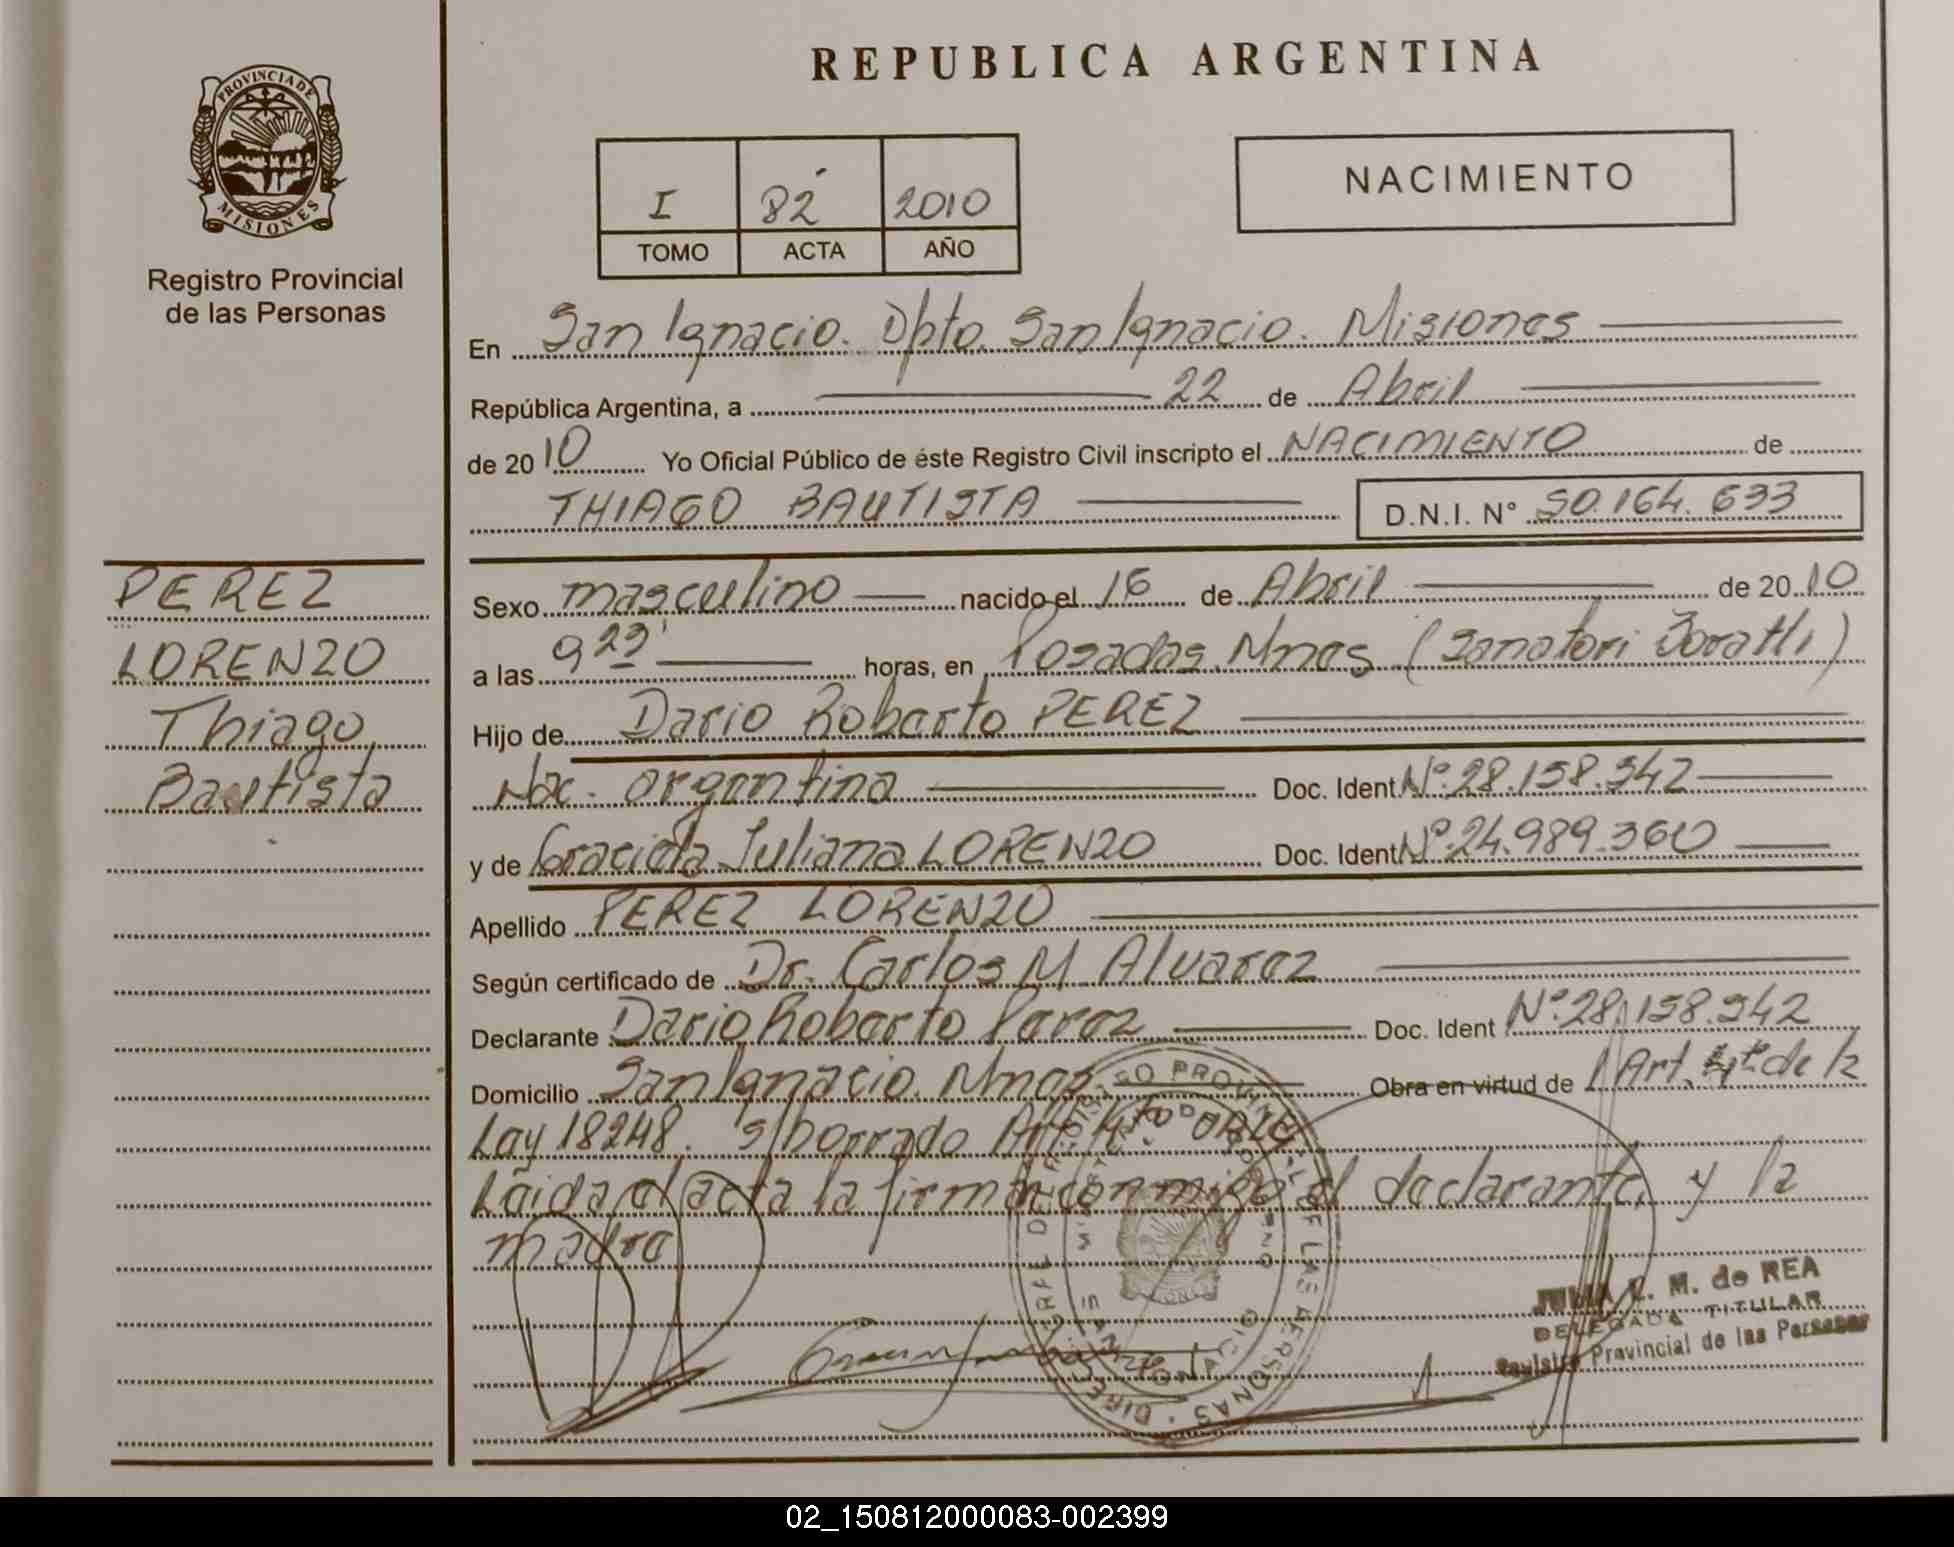 PROVINCIA DE
MISIONES
Registro Provincial
de las Personas
PEREZ
LORENZO
Thiago
Bautista
REPUBLICA ARGENTINA
I 82 2010
TOMO ACTA AÑO
NACIMIENTO
En San Ignacio. Dpto. San Ignacio. Misiones
República Argentina, a 22 de Abril
de 20 10 Yo Oficial Público de éste Registro Civil inscripto el NACIMIENTO de
THIAGO BAUTISTA D.N.I. N° 50.164.633
Sexo masculino nacido el 16 de Abril de 20 10
a las 9 23' horas, en Posadas. Mnes (Sanatori Boratti)
Hijo de Dario Roberto PEREZ
Nac. argentina Doc. Ident N°.28.158.342
y de Graciela Juliana LORENZO Doc. Ident N°.24.989.360
Apellido PEREZ LORENZO
Según certificado de Dr. Carlos M. Alvarez
Declarante Dario Roberto Perez Doc. Ident N°.28.158.342
Domicilio San Ignacio. Mnes Obra en virtud de Art. 4to de la
Ley 18248. s/borrado Art 4to
Leida el acta la firman conmigo el declarante y la
madre
JULIA E. M. de REA
DELEGADA TITULAR
Registro Provincial de las Personas
02_150812000083-002399